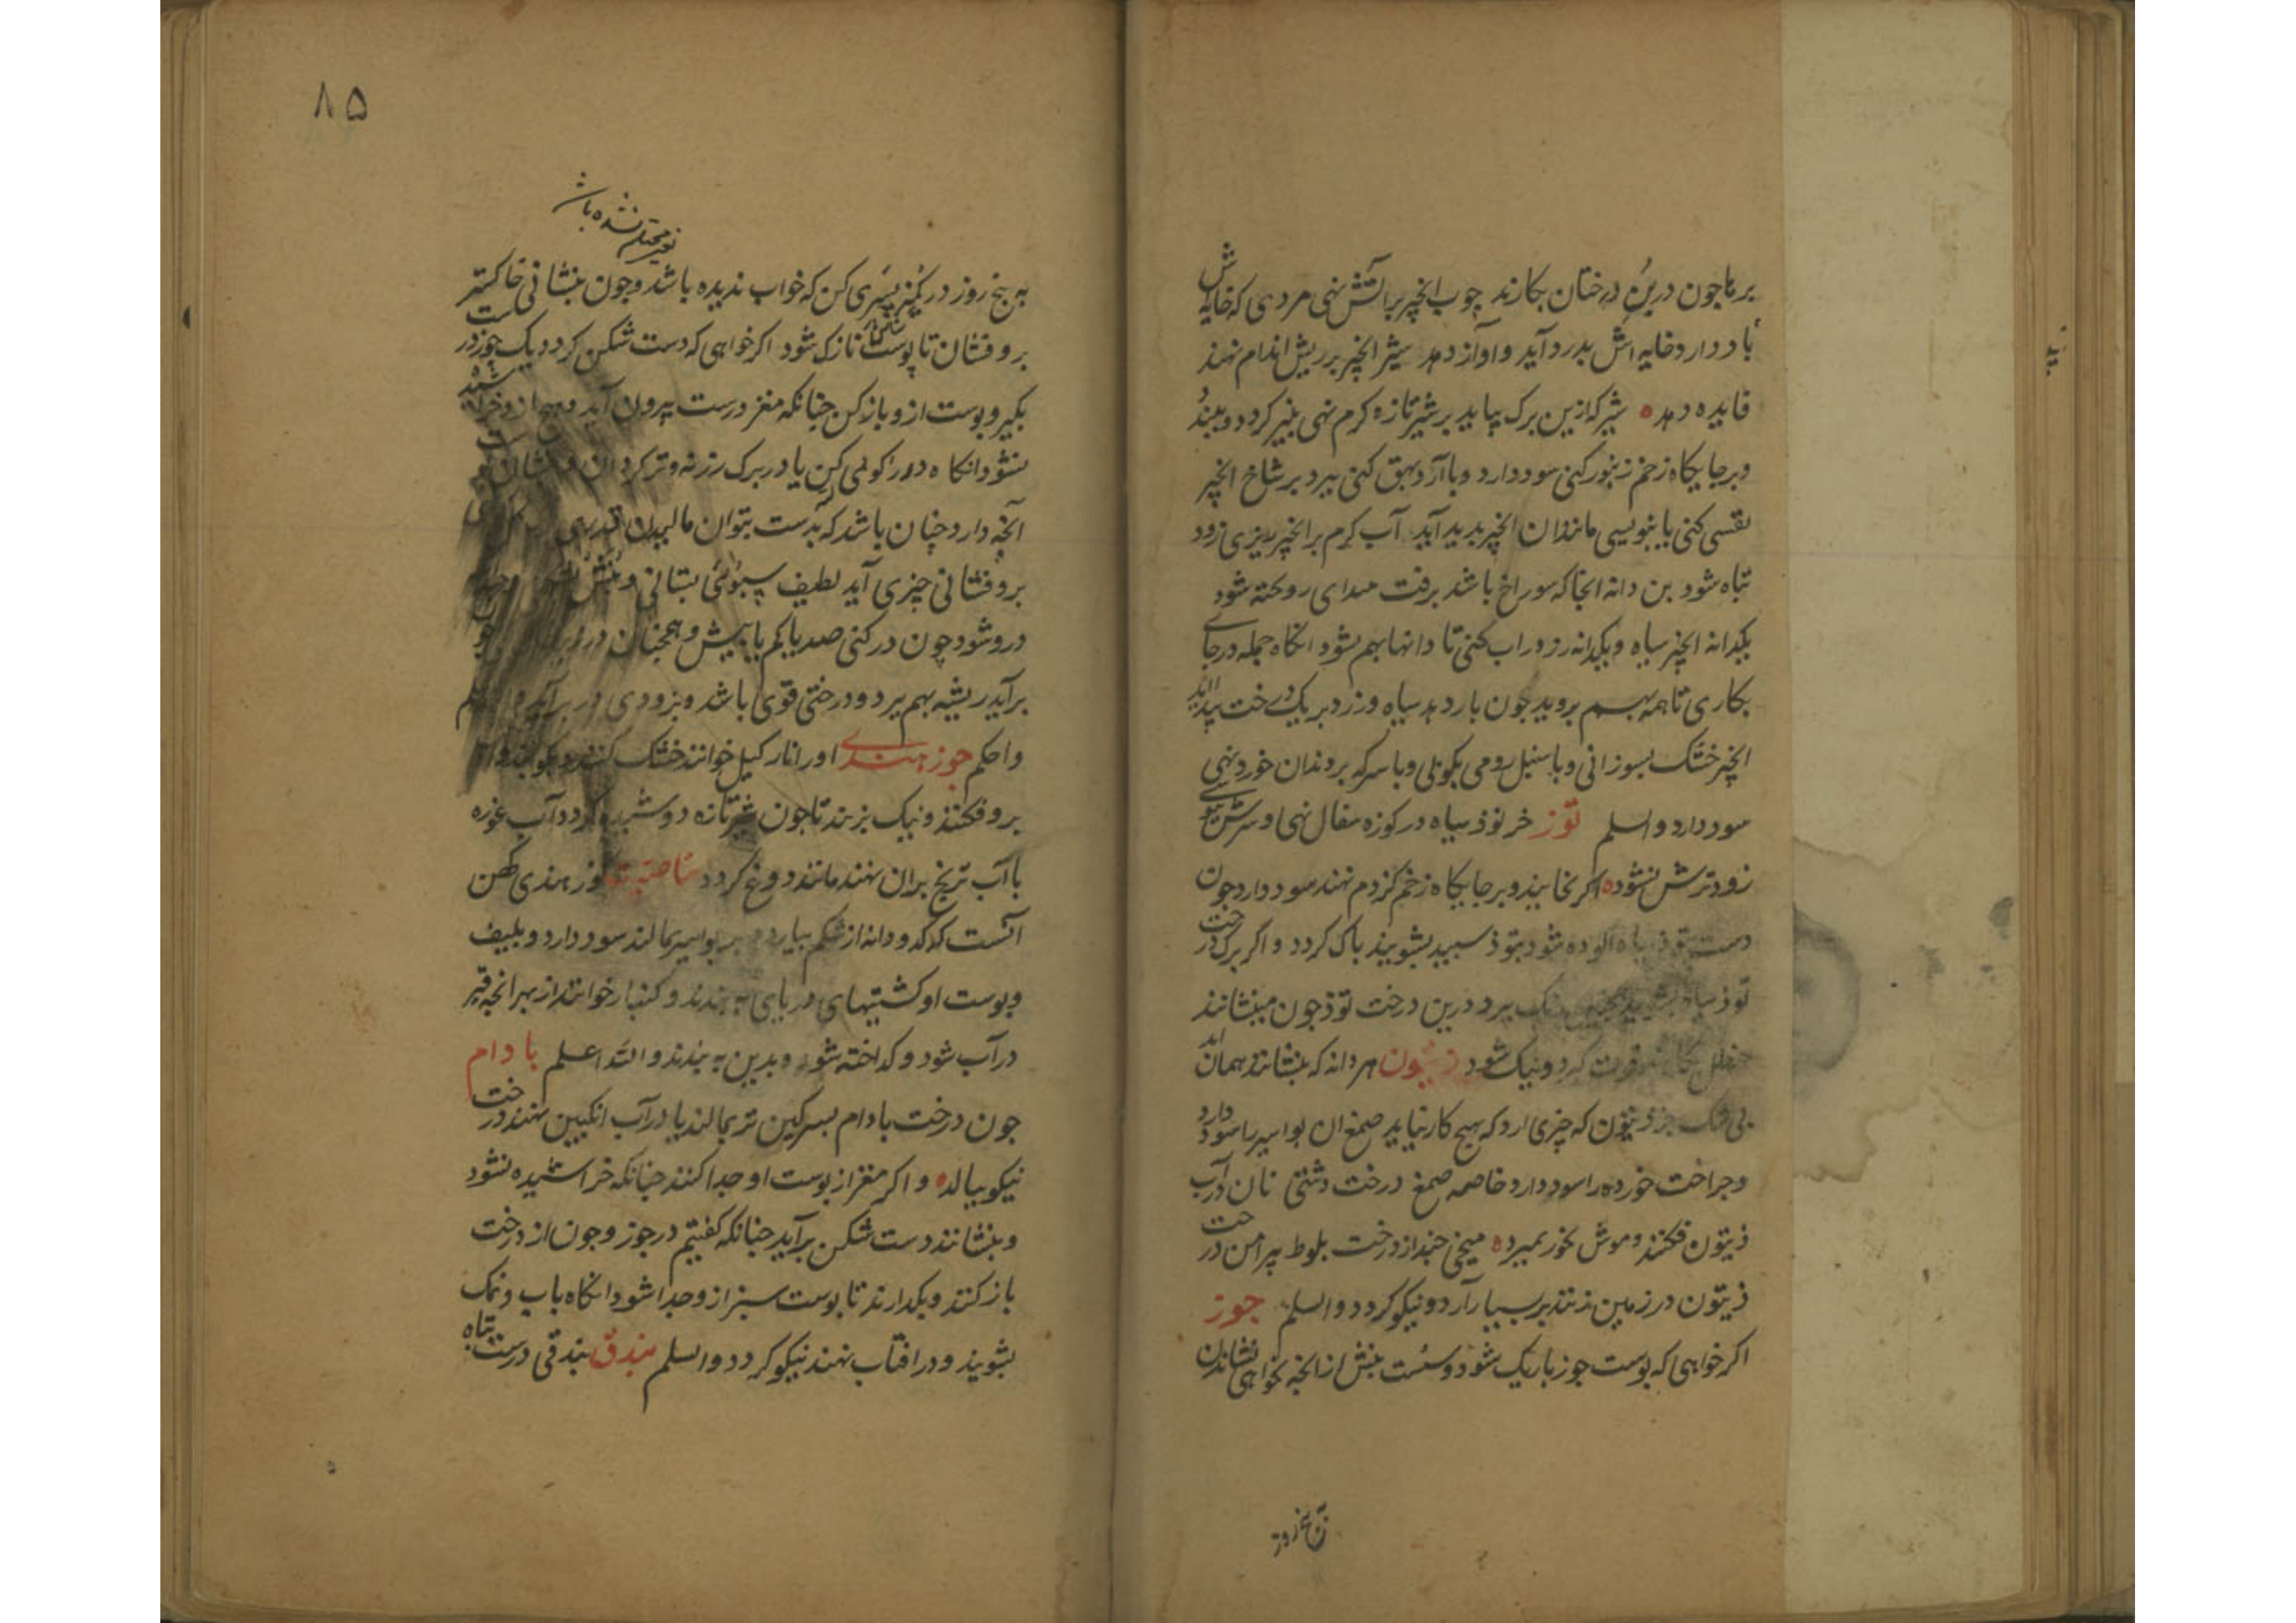 بر ها چون در بن درختان بکارند چوب انجیر بر آتش نهی مردی که خایه اش
باد دارد خایه اش بدرد آید و آواز دهد شیر انجیر بر ریش اندام نهند
فایده دهد ه شیر که ازین برک بیاید بر شیر تازه کرم نهی بنیر کردد و ببندد
و بر جایکاه زخم زنبور کنی سود دارد و با آرد بهق کنی ببرد بر شاخ انجیر
نقسی کنی یا بنویسی مانند آن انجیر بدید آید آب کرم بر انجیر ریزی زود
تباه شود بن دانه انجا که سوراخ باشد بزفت
یکدانه انجیر سیاه و یکدانه زرد در آب کنی تا دانها بهم شود انکاه جمله در جای
بکاری تا همه بهم بروید جون بار دهد سیاه و زرد بر یک درخت بدید آید
انجیر خشک بسوزانی و با سنبل رومی بکوبی و با سرکه بر دندان خورد نهی
سود دارد والسلم توز خر توذ سیاه در کوزه سفال نهی و سرش
زود ترش نشود ه اکر بخایند و بر جایکاه زخم کزدم نهند سود دارد جون
دست بتوذ سیاه آلوده شود بتوذ سبید بشویند باک کردد و اکر برک درخت
توذ سیاه ببرد درین درخت توذ جون بنشانند
کردد و نیک شود زیتون هر دانه که بنشانند همان آید
بی شک جز زیتون که چیزی ارد که بهیج کار نیاید صمغ ان بواسیر را سود دارد
و جراحت خورده را سود دارد خاصه صمغ درخت دشتی نان در آب
زیتون فکنند و موش بخورد بمیرد ه میخی چند از درخت بلوط پیرامن درخت
زیتون در زمین زنند بر بسیار آرد و نیکو کردد والسلم جوز
اکر خواهی که بوست جوز باریک شود و سست بنش از انچه بخواهی نشاندن
ترا پنج روز
۸۵
تو محتلم نشده باش
به پنج روز در کمیز پسری کن که خواب ندیده باشد و جون بنشانی خاکستر
برو فشان تا پوستش نازک شود اکر خواهی که دست شکن کردد یک جوز درست
بکیر و بوست ازو باز کن جنانکه مغز درست بیرون آید و هیج ازو خراشیده
نشود انکاه در کوی کن یا در برک رز نه و تر کردان و بنشان
آنچه دارد چنان باشد که بدست بتوان مالیدن قدری
برو فشانی چیزی آید لطیف سبوئی بستانی و بنش
درو شود چون در کنی صد یا کم یا بیش و همچنان در زیر
برآید ریشه بهم برد و درختی قوی باشد و بزودی در بر آید
واحکم جوز هندی اورا نارکیل خوانند خشک کنند و بکوبند و آب
برو فکنند و نیک بزنند تا جون شیر تازه دوشیده کردد آب غوره
با آب ترنج بران نهند مانند دوغ کردد خاصیت جوز هندی کهن
آنست که کدو دانه از شکم بیارد و بر بواسیر مالند سود دارد و بلیف
و بوست او کشتیهای دریای به بندند و کنبار خوانند از بهر انچه قیر
در آب شود و کداخته شود و بدین به بندند والله اعلم بادام
جون درخت بادام بسرکین تر بمالند یا در آب انکبین نهند درخت
نیکو ببالد ه و اکر مغز از بوست او جدا کنند جنانکه خراشیده نشود
و بنشانند دست شکن برآید جنانکه کفتیم در جوز و جون از درخت
باز کنند و بکدارند تا بوست سبز ازو جدا شود انکاه باب و نمک
بشویند و در افتاب نهند نیکو کردد والسلم بندق بندقی درست تباه